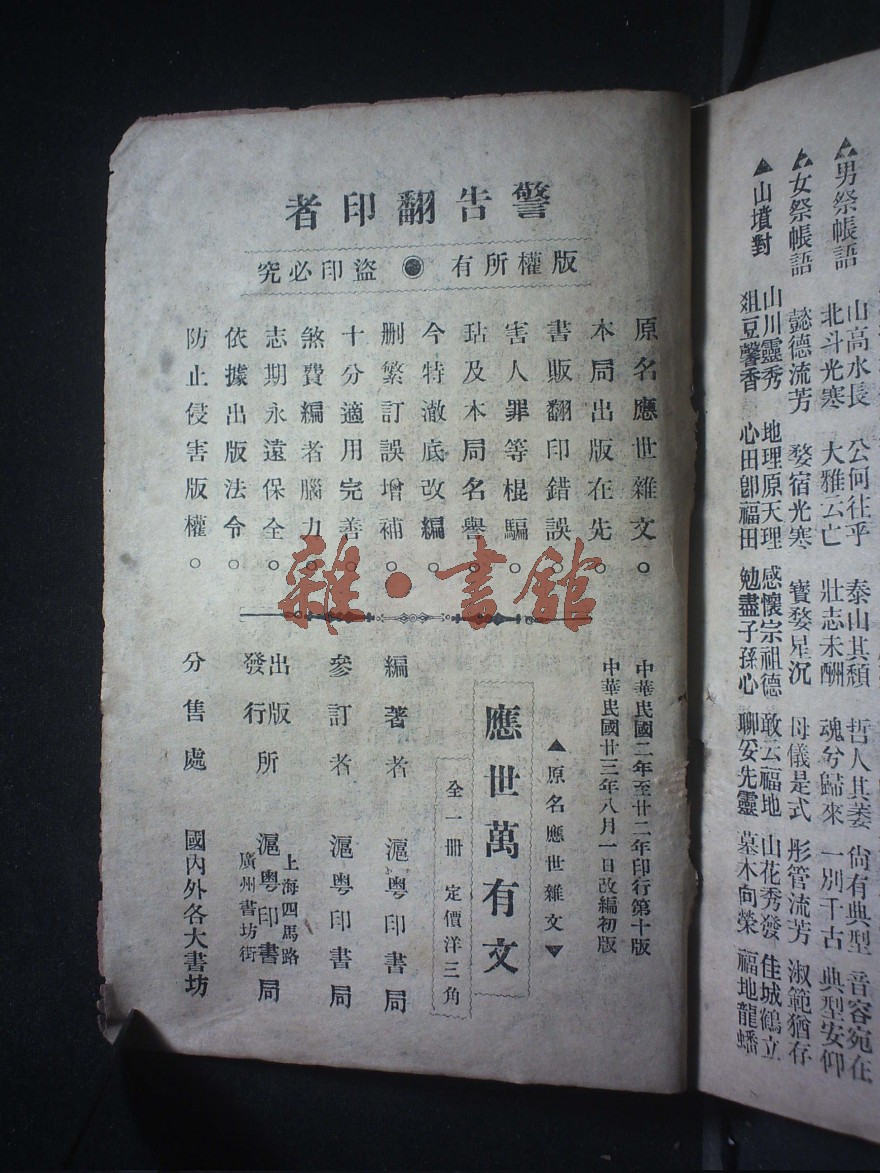 ▲男祭帳語
山高水長 公何往乎 泰山其頹 哲人其萎 尙有典型 音容宛在
北斗光寒 大雅云亡 壯志未酬 魂兮歸來 一別千古 典型安仰
▲女祭帳語 懿德流芳 婺宿光寒 寶婺星沉 母儀是式 彤管流芳 淑範猶存
▲山墳對
山川靈秀 地理原天理 感懷宗祖德 敢云福地 山花秀發 佳城鶴立
俎豆馨香 心田卽福田 勉盡子孫心 聊妥先靈 墓木向榮 福地龍蟠
警告翻印者
版權所有 ● 盜印必究
原名應世雜文。
本局出版在先。
書販翻印錯誤。
害人罪等棍騙。
玷及本局名譽。
今特澈底改編。
删繁訂誤增補。
十分適用完善。
煞費編者腦力。
志期永遠保全。
依據出版法令。
防止侵害版權。
中華民國二年至廿二年印行第十版
中華民國廿三年八月一日改編初版
▲原名應世雜文▼
應世萬有文
全一册 定價洋三角
編著者 滬粤印書局
參訂者 滬粤印書局
出版
發行所 滬粤印書局
上海四馬路
廣州書坊街
分售處 國內外各大書坊
雜·書館